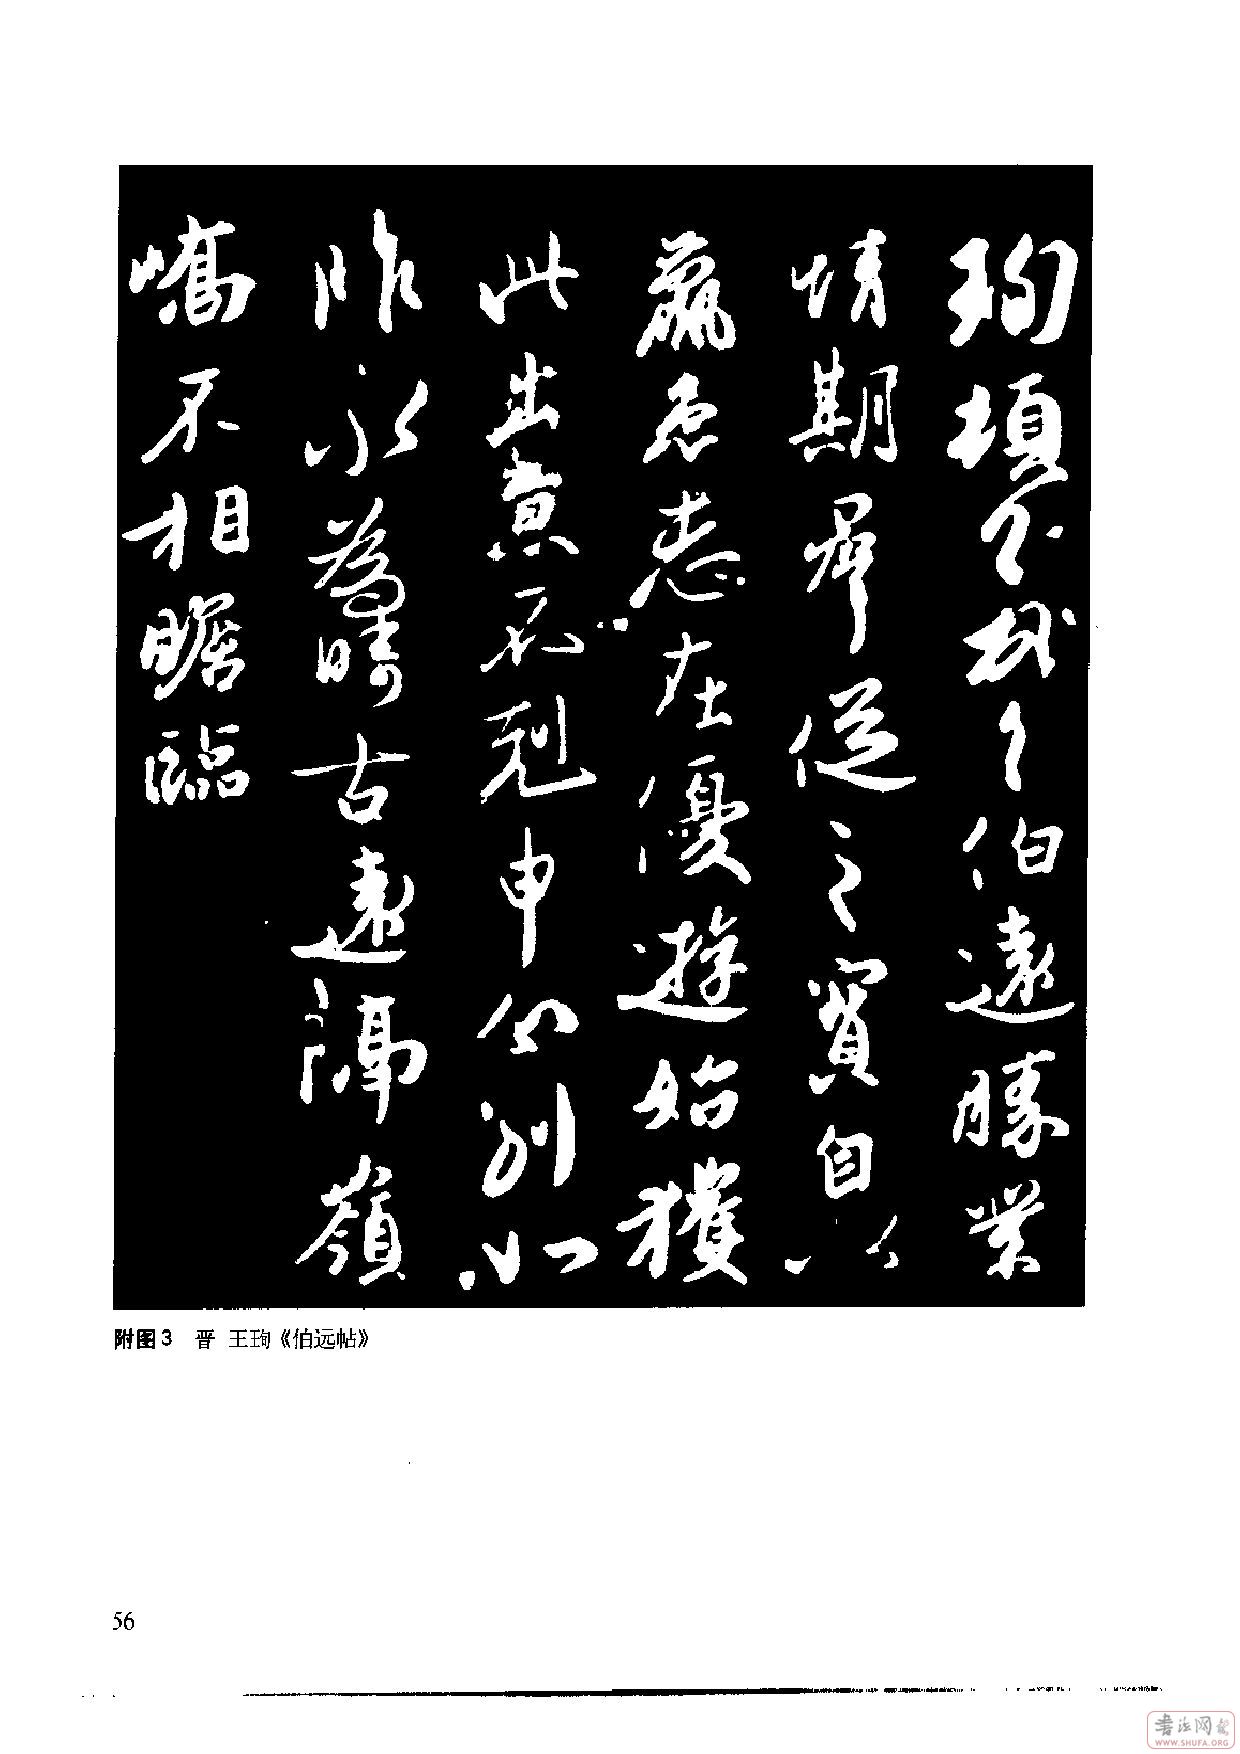 珣頓首頓首伯遠勝業
情期羣從之寶自以
羸患志在優遊始獲
此出意不剋申分別如
昨永為疇古遠隔嶺
嶠不相瞻臨
附图3 晋 王珣《伯远帖》
56
书法网
WWW.SHUFA.ORG